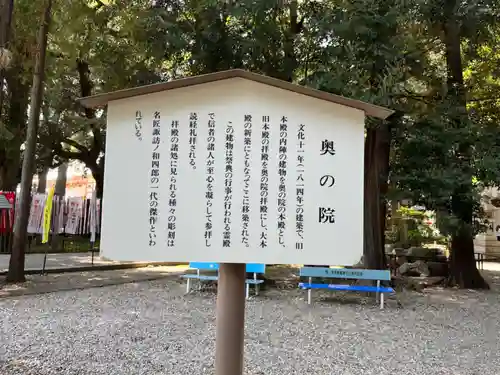 奥の院
文化十一年（一八一四年）の建築で、旧
本殿の内陣の建物を奥の院の本殿とし、
旧本殿の拝殿を奥の院の拝殿にし、大本
殿の新築にともなってここに移築された。
この建物は祭典の行事が行われる霊殿
で信者の諸人が至心を凝らして参拝し
読経礼拝される。
拝殿の諸処に見られる種々の彫刻は
名匠諏訪ノ和四郎の一代の傑作といわ
れている。